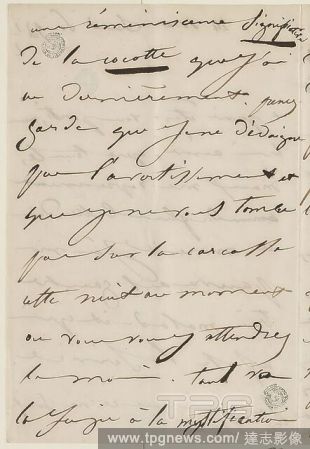 une réminiscence significative
de la cocotte que j'ai
eu dernièrement. prenez
garde que je ne dédaigne
pas l'avertissement et
que je ne vous tombe
pas sur la carcasse
cette nuit au moment
où vous vous y attendrez
le moins. tout va
la Sagie à la mystification
TPG
www.tpgnews.com/ 達志影像